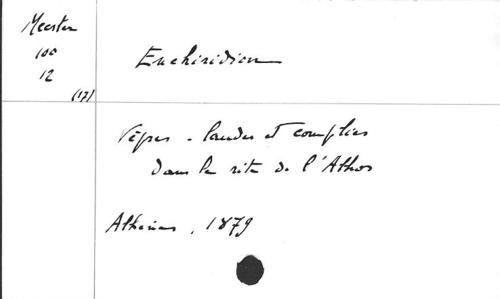 Meester
100
12
(17)
Enchiridion
Vêpres - laudes et complies
dans le rite de l'Athos
Athènes, 1879